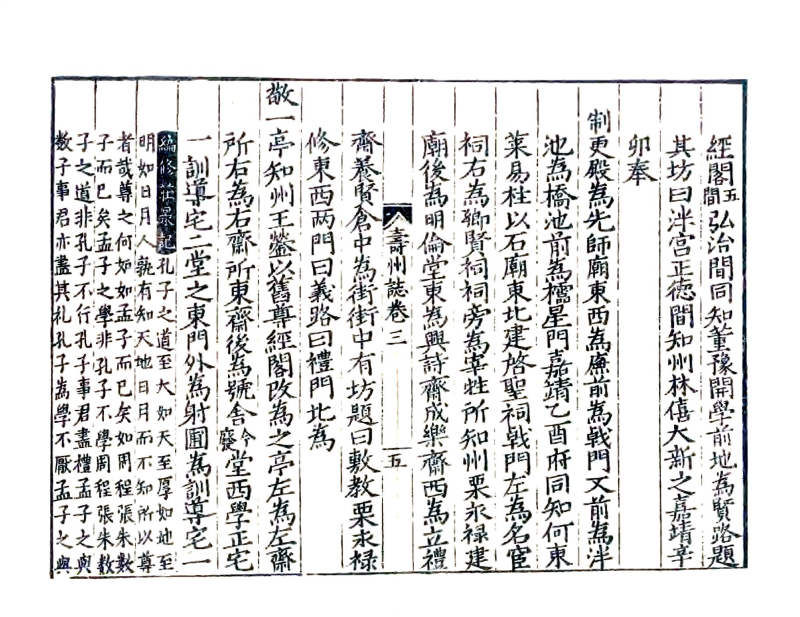 經閣五間弘治間同知董豫開學前地為賢路題
其坊曰泮宮正德間知州林僖大新之嘉靖辛
卯奉
制更殿為先師廟東西為廡前為戟門又前為泮
池為橋池前為櫺星門嘉靖乙酉府同知何東
萊易柱以石廟東北建啓聖祠戟門左為名宦
祠右為鄉賢祠祠旁為宰牲所知州栗永禄建
廟後為明倫堂東為興詩齋成樂齋西為立禮
壽州誌卷三 五
齋養賢倉中為街街中有坊題曰敷教栗永禄
修東西两門曰義路曰禮門北為
敬一亭知州王鎣以舊尊經閣改為之亭左為左齋
所右為右齋所東齋後為號舍今廢堂西學正宅
一訓導宅二堂之東門外為射圃為訓導宅一
編修莊㫤記孔子之道至大如天至厚如地至
明如日月人孰有知天地日月而不知所以尊
者哉尊之何如如孟子而已矣如周程張朱數
子而已矣孟子之學非孔子不學周程張朱數
子之道非孔子不行孔子事君盡禮孟子之與
数子事君亦盡其礼孔子為學不厭孟子之與